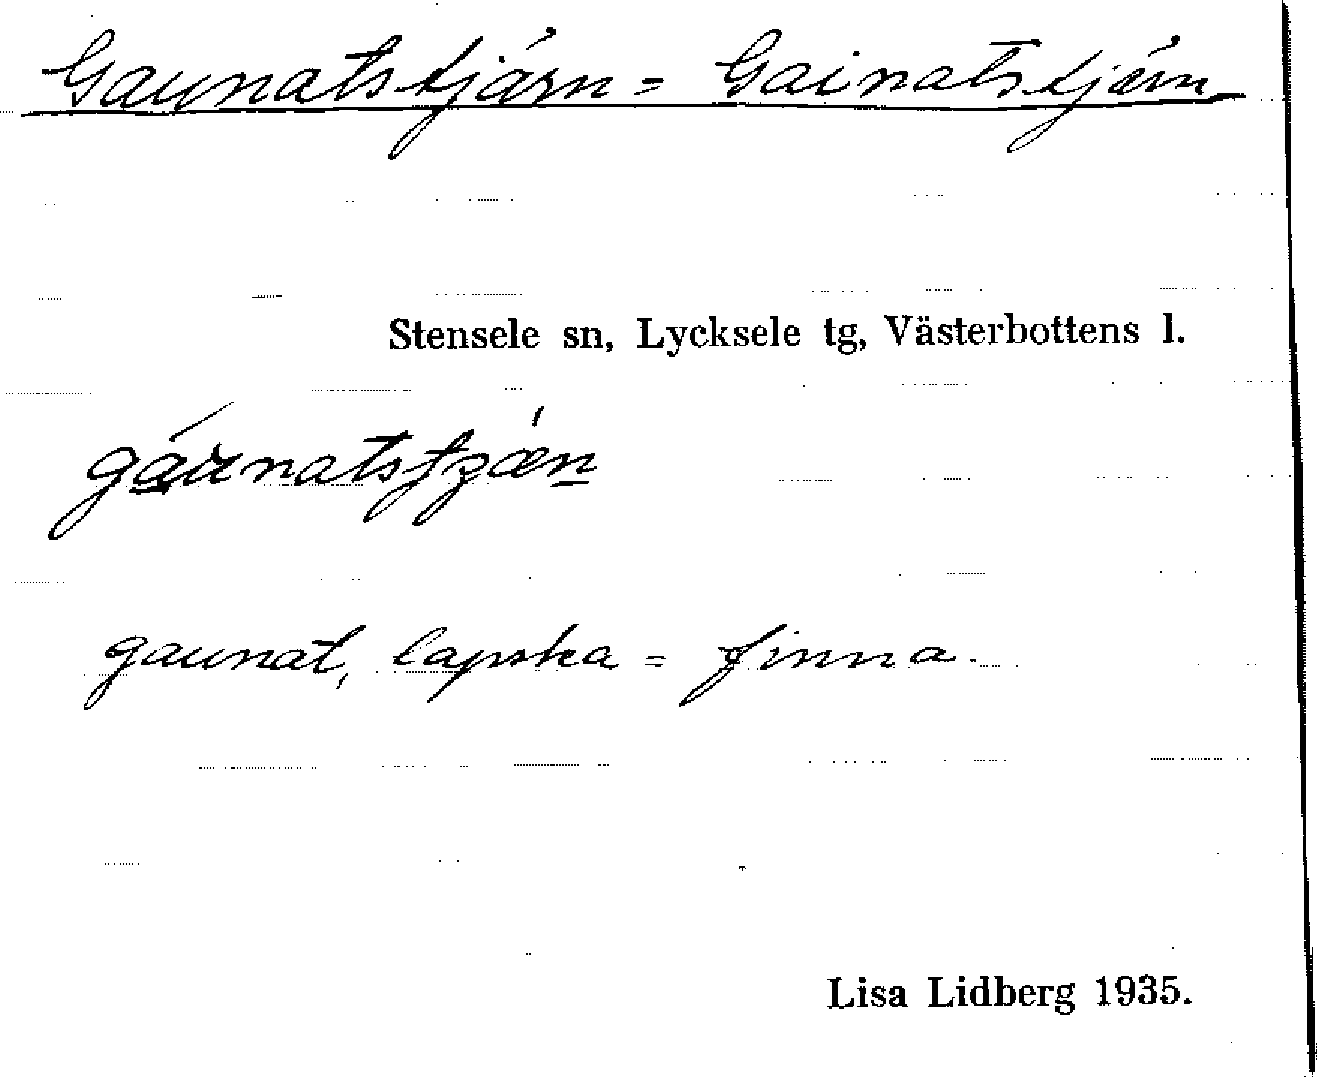 Gaunatstjärn = Gainatstjärn
Stensele sn, Lycksele tg, Västerbottens l.
gaunat, lapska = finna.
Lisa Lidberg 1935.